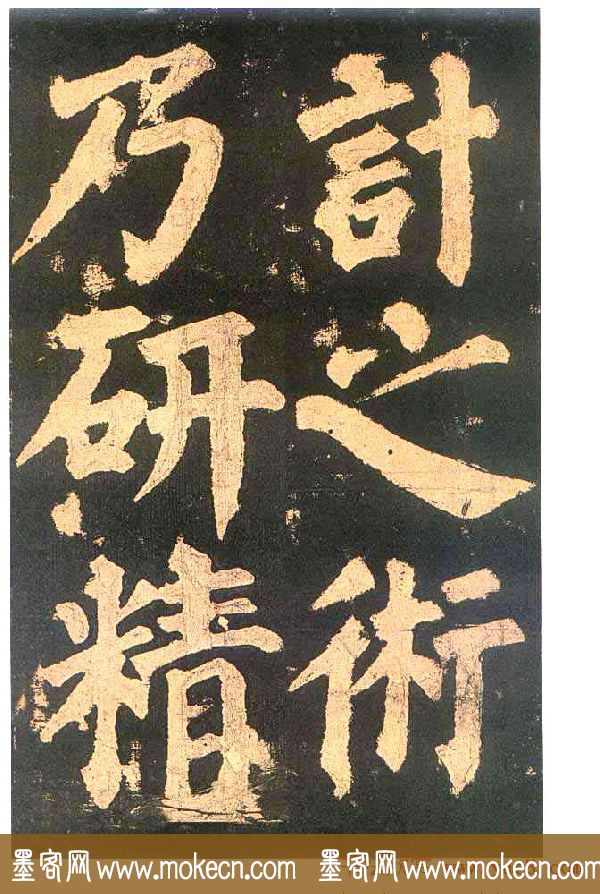 計之術
乃研精
墨客网 www.mokecn.com 墨客网 www.mokecn.com